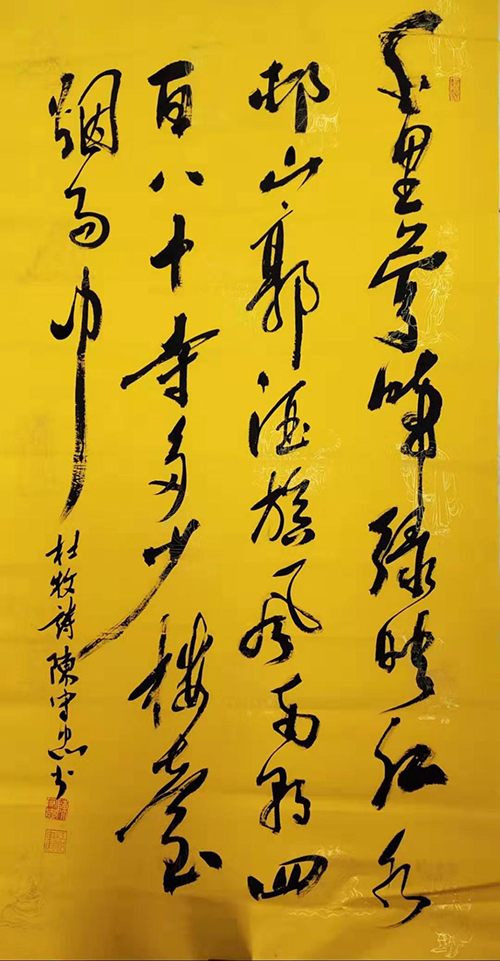 千里莺啼绿映红水
邨山郭酒旗风南朝四
百八十寺多少楼臺
烟雨中
杜牧詩陳守忠书